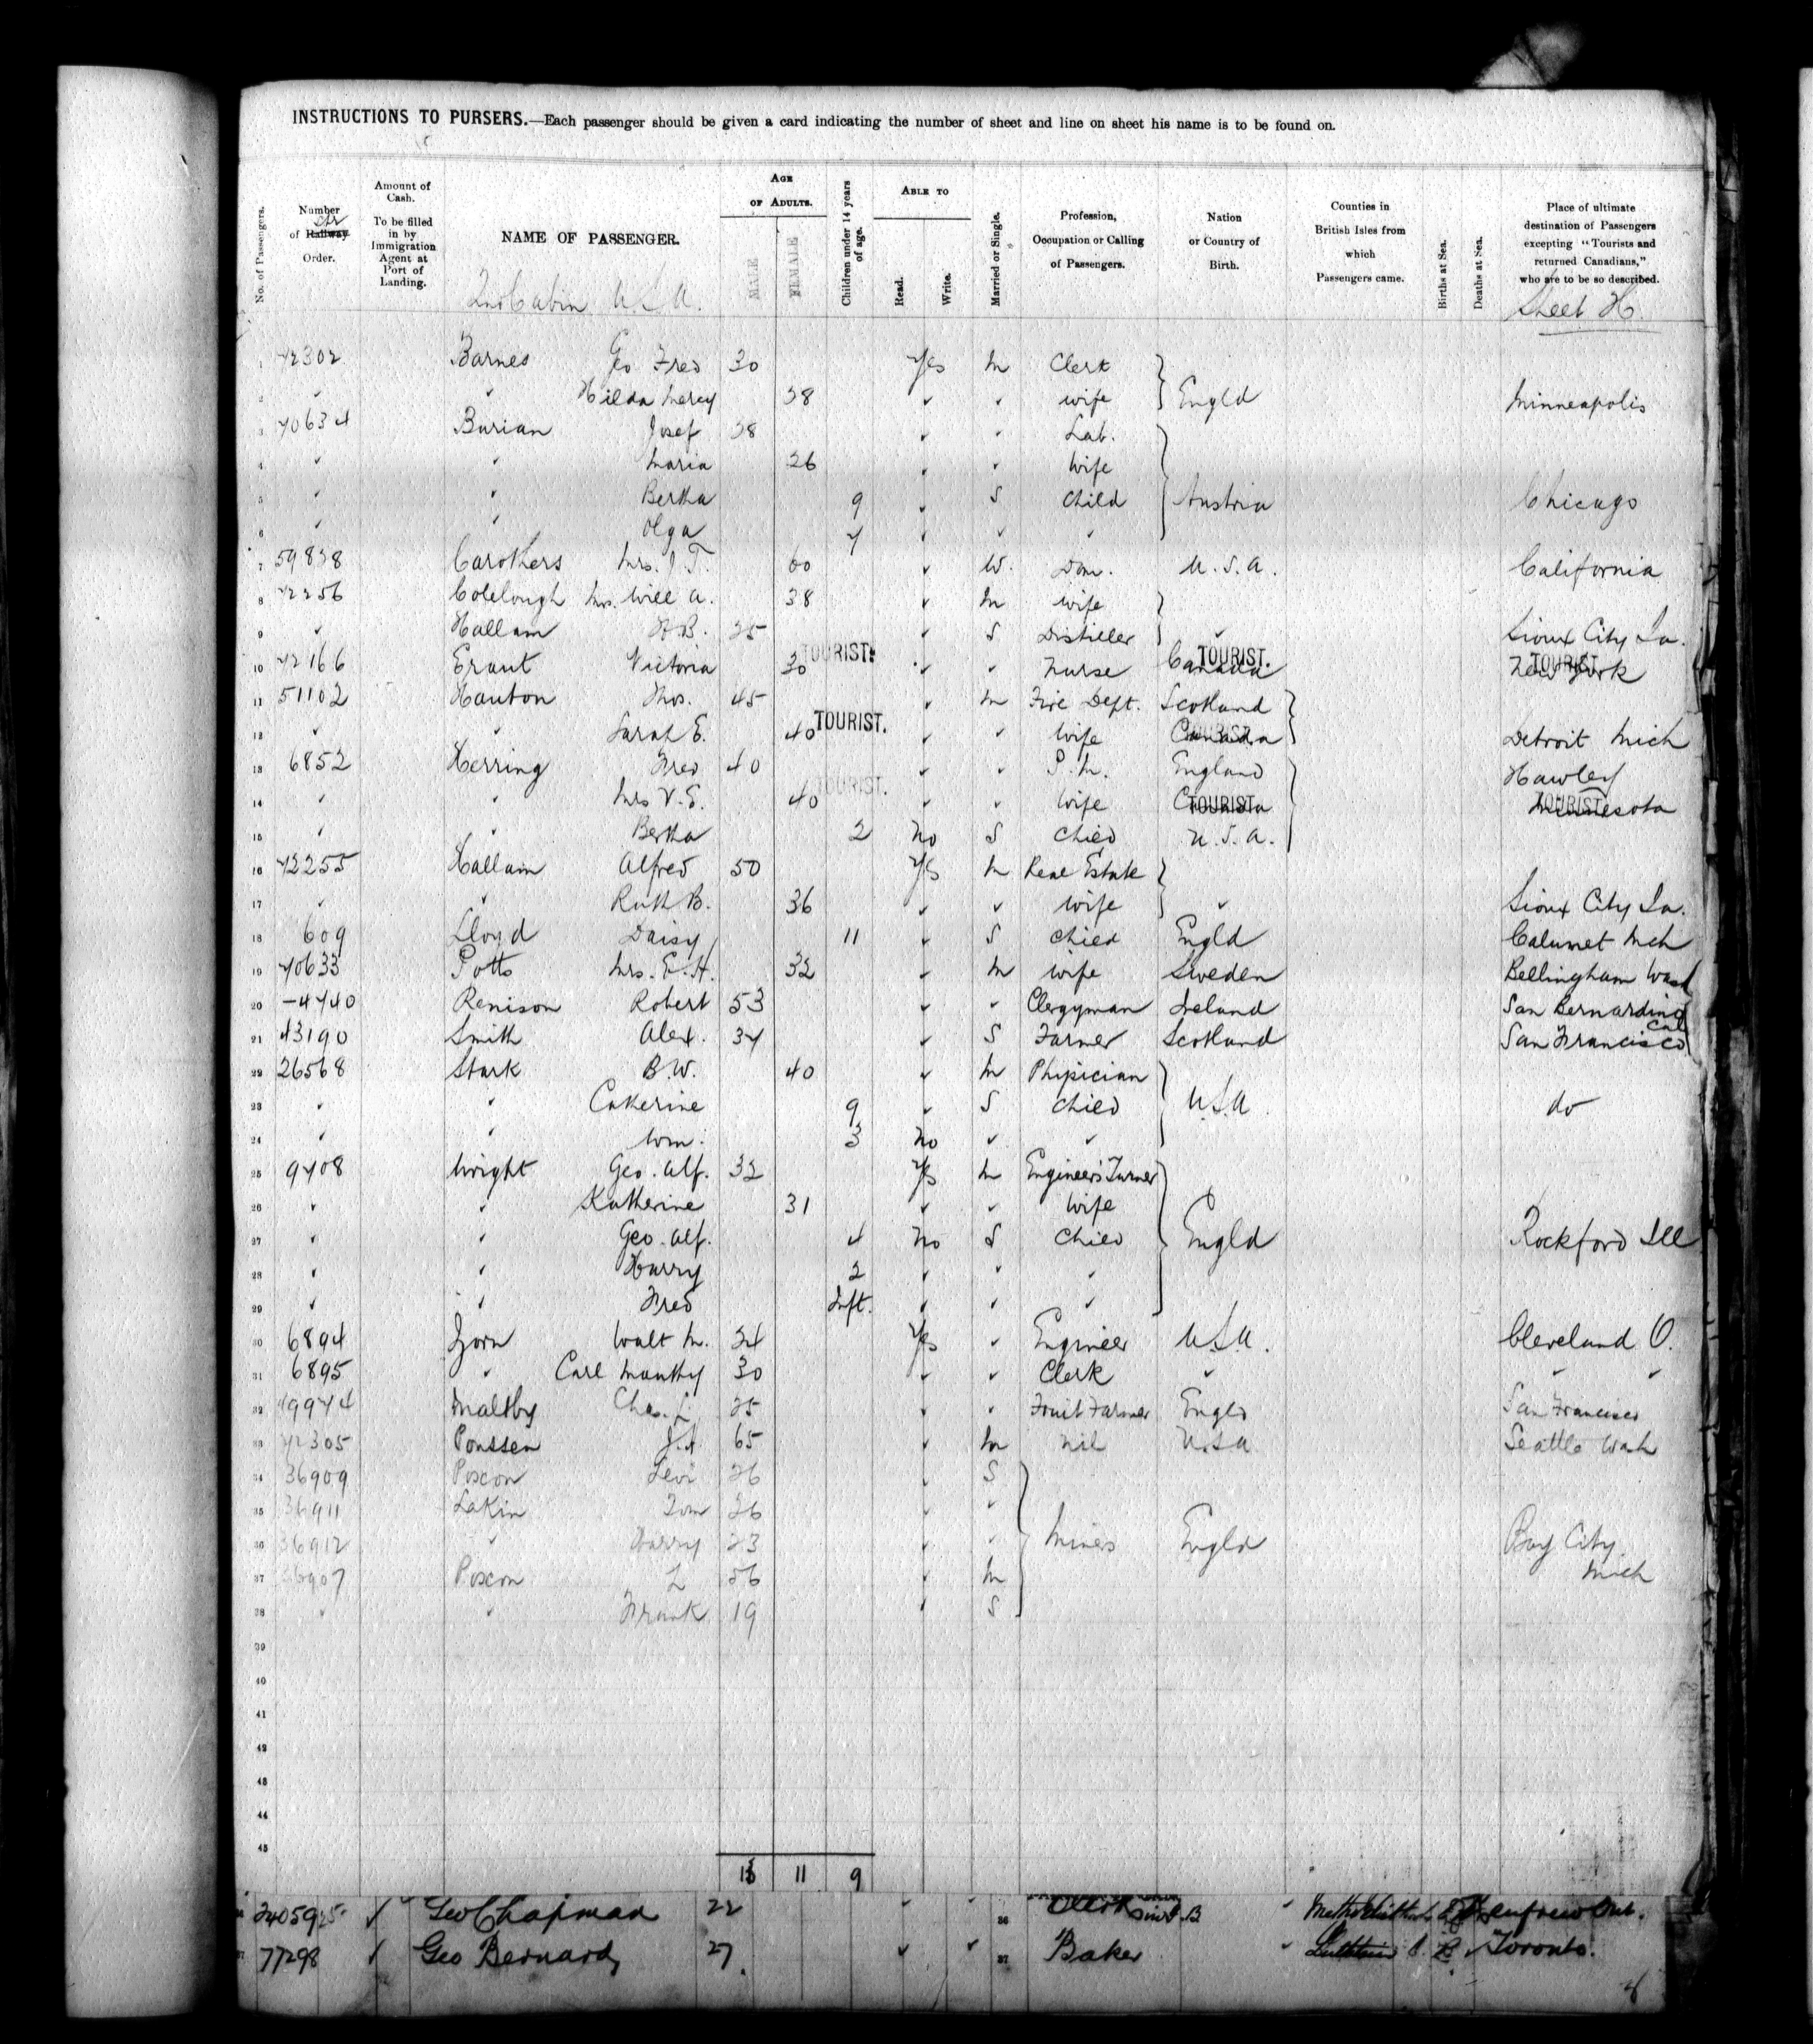 INSTRUCTIONS TO PURSERS.—Each passenger should be given a card indicating the number of sheet and line on sheet his name is to be found on.
No. of Passengers. Number of Railway Order. Amount of Cash. To be filled in by Immigration Agent at Port of Landing. NAME OF PASSENGER. AGE OF ADULTS. MALE FEMALE Children under 14 years of age. ABLE TO Read. Write. Married or Single. Profession, Occupation or Calling of Passengers. Nation or Country of Birth. Counties in British Isles from which Passengers came. Births at Sea. Deaths at Sea. Place of ultimate destination of Passengers excepting "Tourists and returned Canadians," who are to be so described.
2nd Cabin U.S.A. Sheet H.
1 42302 Barnes Geo Fred 30 Yes M Clerk
2 ✓ ✓ Hilda Mercy 28 ✓ ✓ wife Engld Minneapolis
3 40634 Burian Josef 28 ✓ ✓ Lab.
4 ✓ ✓ Maria 26 ✓ ✓ Wife
5 ✓ ✓ Bertha 9 ✓ S Child Austria Chicago
6 ✓ ✓ Olga 7 ✓ ✓ ✓
7 59838 Carothers Mrs. J.T. 60 ✓ W. Dom. U.S.A. California
8 42256 Colclough Mrs. Will A. 38 ✓ M wife
9 ✓ Hallam H.B. 25 ✓ S Distiller ✓ Sioux City Ia.
10 42166 Victoria 30 TOURIST. ✓ ✓ Nurse Canada TOURIST. New York TOURIST
11 51102 Hanton Thos. 45 ✓ M Fire Dept. Scotland
12 ✓ ✓ Sarah E. 40 TOURIST. ✓ ✓ Wife Canada TOURIST. Detroit Mich
13 6852 Herring Fred 40 ✓ ✓ England Hawley
14 ✓ ✓ Mrs V.E. 40 TOURIST. ✓ ✓ Wife Canada TOURIST Minnesota TOURIST
15 ✓ ✓ Bertha 2 No S Child U.S.A.
16 42255 Hallam Alfred 50 Yes M Real Estate
17 ✓ ✓ Ruth B. 36 ✓ ✓ wife ✓ Sioux City Ia.
18 609 Lloyd Daisy 11 ✓ S Child Engld Calumet Mch
19 40633 Potts Mrs. E.H. 32 ✓ M wife Sweden Bellingham Wash
20 -4740 Renison Robert 53 ✓ ✓ Clergyman Ireland San Bernardino Cal
21 43190 Smith Alex. 34 ✓ S Farmer Scotland San Francisco
22 26568 Stark B.W. 40 ✓ M Phipician
23 ✓ ✓ Catherine 9 ✓ S Child U.S.A. do
24 ✓ ✓ Wm. 3 No ✓ ✓
25 9408 Wright Geo. Alf. 32 Yes M Engineers Turner
26 ✓ ✓ Katherine 31 ✓ ✓ Wife
27 ✓ ✓ Geo. Alf. 4 No S Child Engld Rockford Ill
28 ✓ ✓ Harry 2 ✓ ✓ ✓
29 ✓ ✓ Fred Inft. ✓ ✓ ✓
30 6894 Zorn Walt M. 24 Yes ✓ Engineer U.S.A. Cleveland O.
31 6895 ✓ Carl 30 ✓ ✓ Clerk ✓ ✓ ✓
32 49944 Maltby Chas. 25 ✓ ✓ Fruit Farmer Engld San Francisco
33 42305 Poussen J.A. 65 ✓ M Nil U.S.A Seattle Wash
34 36909 Poxon Levi 26 ✓ S
35 36911 Lakin Tom 26 ✓ ✓
36 36912 ✓ Harry 23 ✓ ✓ Miners Engld Bay City
37 36907 Poxon L 56 ✓ M Mich
38 ✓ ✓ Frank 19 ✓ S
39
40
41
42
43
44
45
11 9
Geo Chapman 22 ✓ ✓ 36 Clerk ✓ Renfrew Ont.
77298 ✓ Geo Bernard 27 ✓ ✓ 37 Baker ✓ Toronto.